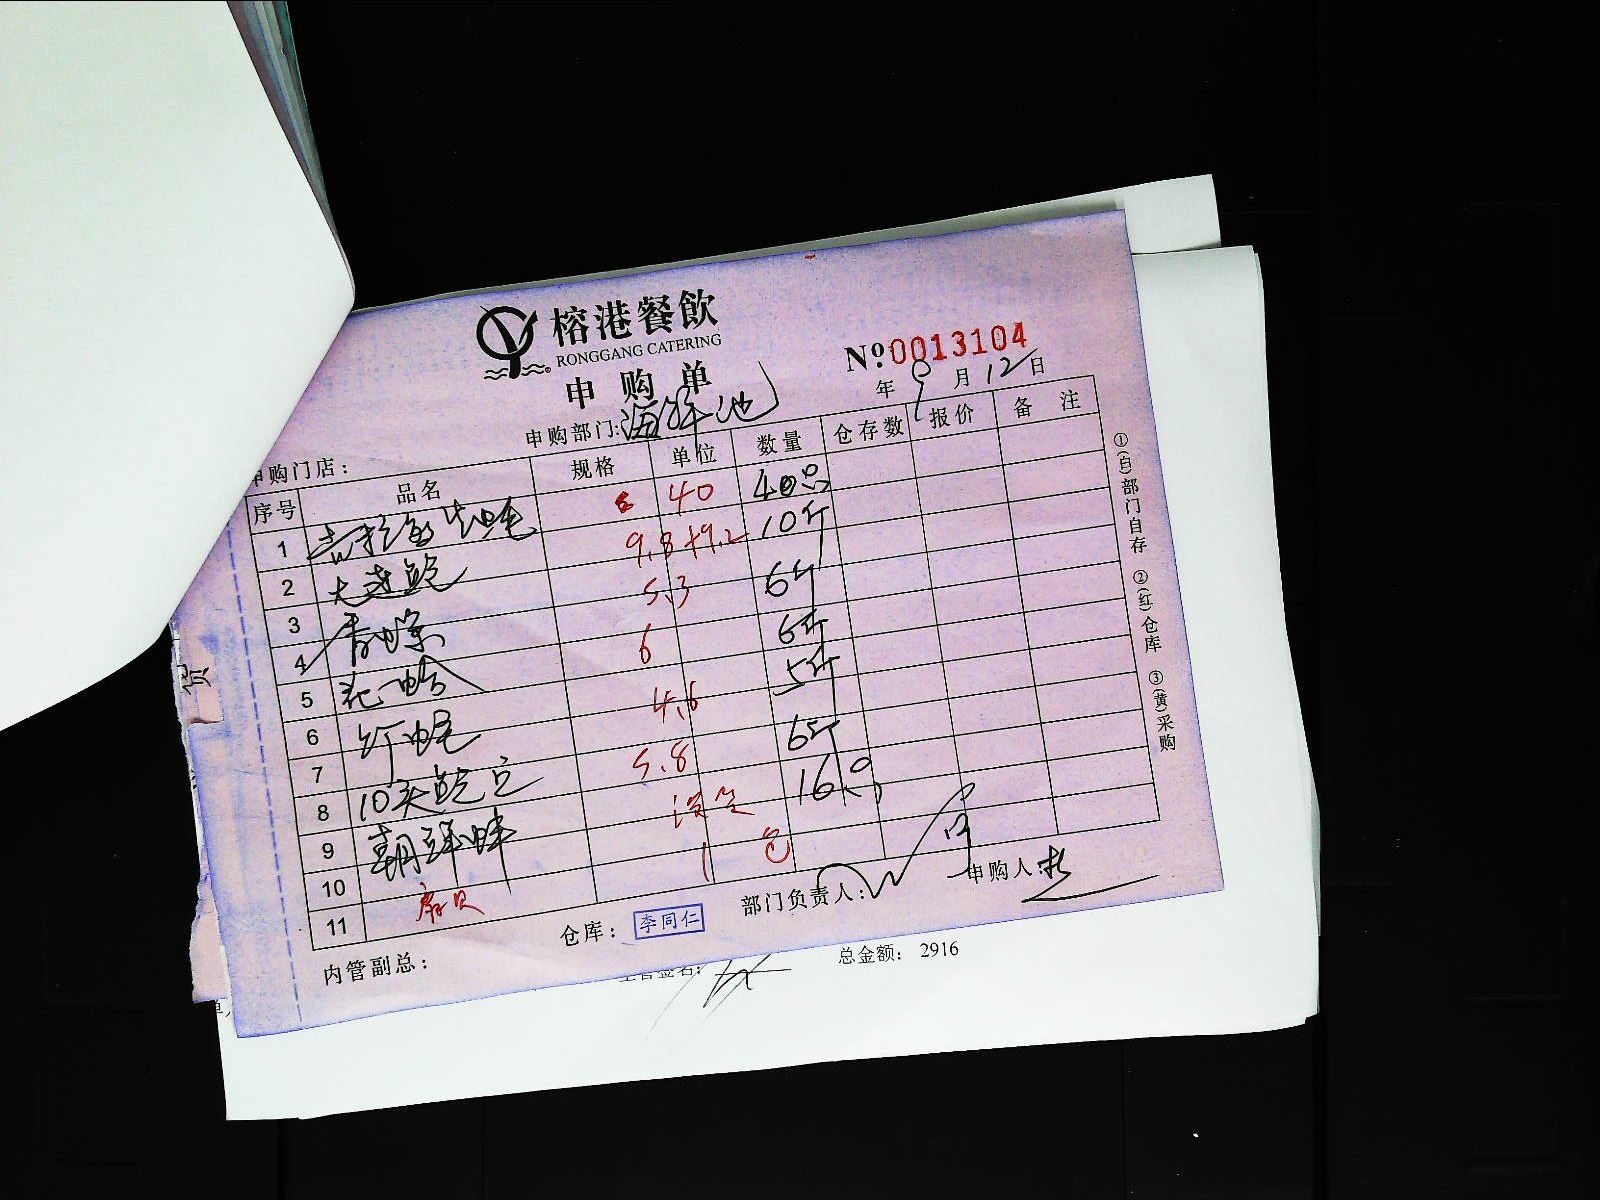 榕港餐飲
RONGGANG CATERING
申购单
№ 0013104
年 9 月 12 日
申购部门: 海鲜池
申购门店:
序号 品名 规格 单位 数量 仓存数 报价 备注
1 吉拉多生蚝 40 40只
2 大连鲍 9.8+9.2 10斤
3 5.3 6斤
4 青螺 6 6斤
5 花哈 5斤
6 4.6
7 5.8 6斤
8 10头鲍 16只
9 朝鲜蚌
10 1包
11 扇贝
仓库: 李同仁
部门负责人:
申购人:
内管副总:
①(白)部门自存 ②(红)仓库 ③(黄)采购
总金额: 2916